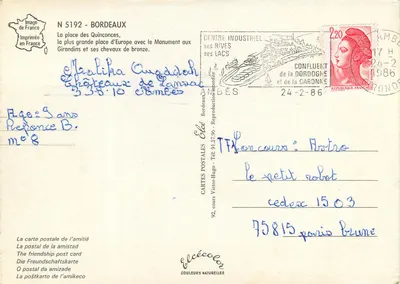 Image de France
Imprimée en France
N 5192 - BORDEAUX
La place des Quinconces,
la plus grande place d'Europe avec le Monument aux
Girondins et ses chevaux de bronze.
Malika
Château de
33810 Ambès
Age: 9 ans
Réponse B.
n° 8
CENTRE INDUSTRIEL
ses RIVES
ses LACS
CONFLUENT
de la DORDOGNE
et de la GARONNE
AMBÈS
24-2-86
2,20
17 H
1986
CARTES POSTALES Elcé
92, cours Victor-Hugo - Tél. 91.37.96 - Reproduction
Concours: Astro
le petit robot
cedex 1503
75815 paris brune
La carte postale de l'amitié
La postal de la amistad
The friendship post card
Die Freundschaftskarte
O postal da amizade
La poŝtkarto de l'amikeco
Elcécolor
COULEURS NATURELLES